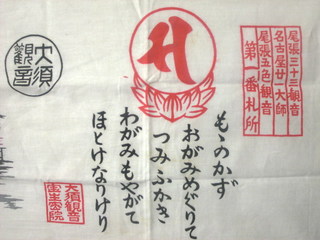 尾張三十三観音
名古屋廿一大師
尾張五色観音
第一番札所
サ
もゝのかず
おがみめぐりて
つみふかき
わがみもやがて
ほとけなりけり
大須
観音
大須観音
宝生院